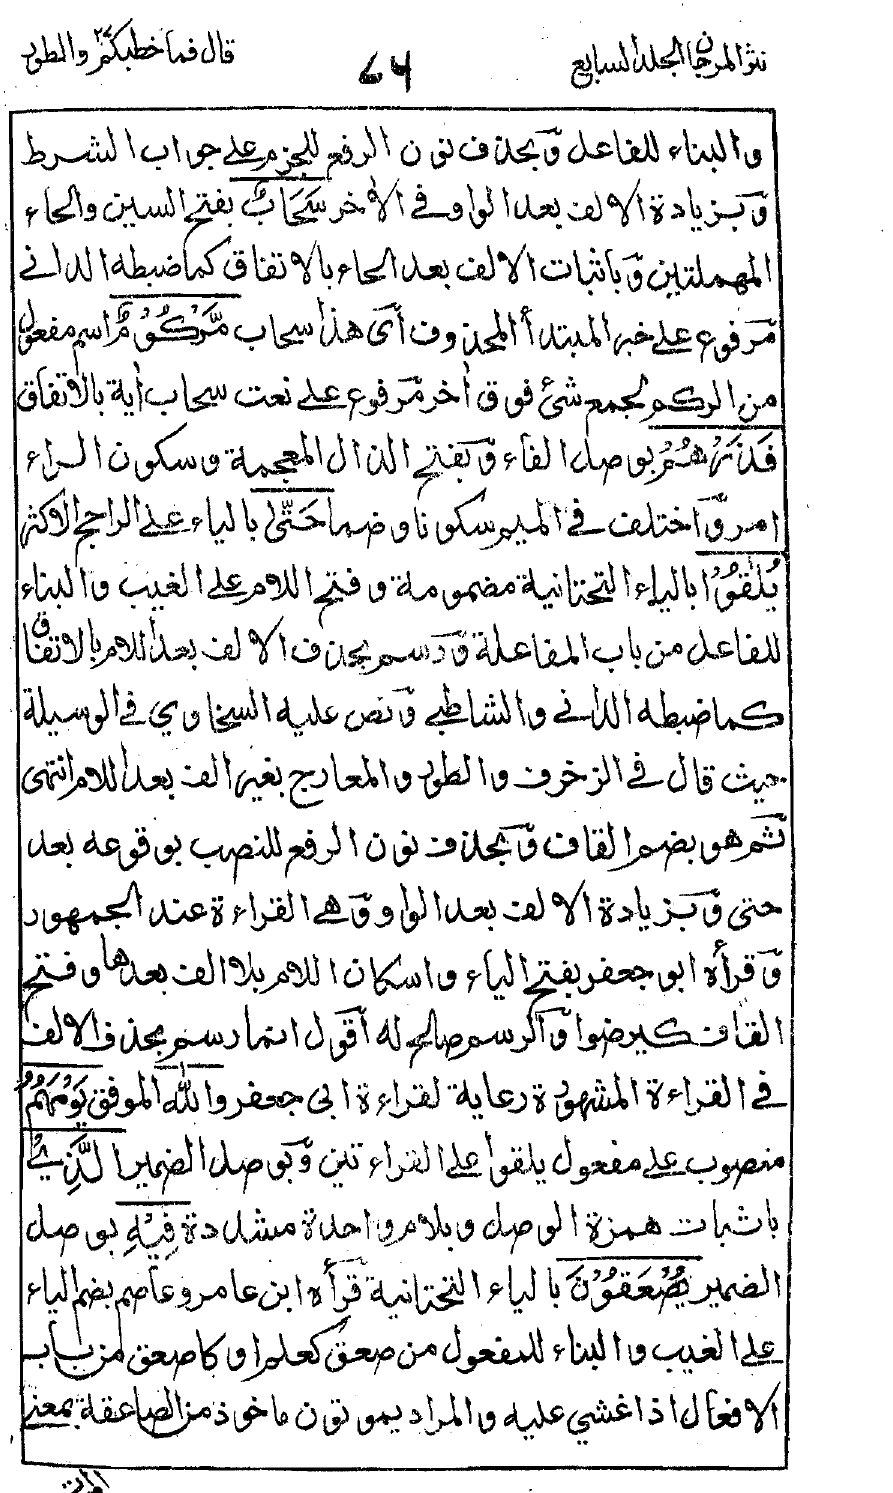 نثر المرجان المجلد السابع
٦٧
قال فما خطبكم ٢٧ والطور
والبناء للفاعل وبحذف نون الرفع للجزم على جواب الشرط
وبزيادة الالف بعد الواو في الأخر سَحَابٌ بفتح السين والحاء
المهملتين وباثبات الالف بعد الحاء بالاتفاق كما ضبطه الداني
مرفوع على خبر المبتدأ المحذوف أي هذا سحاب مَّرْكُوْمٌ اسم مفعول
من الركم لجمع شئ فوق أخر مرفوع على نعت سحاب أية بالاتفاق
فَذَرْهُمْ بوصل الفاء وبفتح الذال المعجمة وسكون الراء
امر واختلف في الميم سكونا وضما حَتّٰى بالياء على الراجح الاكثر
يُلٰقُوْا بالياء التحتانية مضمومة وفتح اللام على الغيب والبناء
للفاعل من باب المفاعلة ورسم بحذف الالف بعد اللام بالاتفاق
كما ضبطه الداني والشاطبي ونص عليه السخاوي في الوسيلة
حيث قال في الزخرف والطور والمعارج بغير الف بعد اللام انتهى
ثم هو بضم القاف وبحذف نون الرفع للنصب بوقوعه بعد
حتى وبزيادة الالف بعد الواو وهي القراءة عند الجمهور
وقرأه ابو جعفر بفتح الياء واسكان اللام بلا الف بعدها وفتح
القاف كيرضوا والرسم صالح له أقول انما رسم بحذف الالف
في القراءة المشهورة رعاية لقراءة ابى جعفر والله الموفق يَوْمَهُمُ
منصوب على مفعول يلقوا على القراءتين وبوصل الضمير الَّذِيْ
باثبات همزة الوصل وبلام واحدة مشددة فِيْهِ بوصل
الضمير يُصْعَقُوْنَ بالياء التحتانية قرأه ابن عامر وعاصم بضم الياء
على الغيب والبناء للمفعول من صعق كعلم او كاصعق من باب
الافعال اذا غشي عليه والمراد يموتون ماخوذ من الصاعقة بمعنى